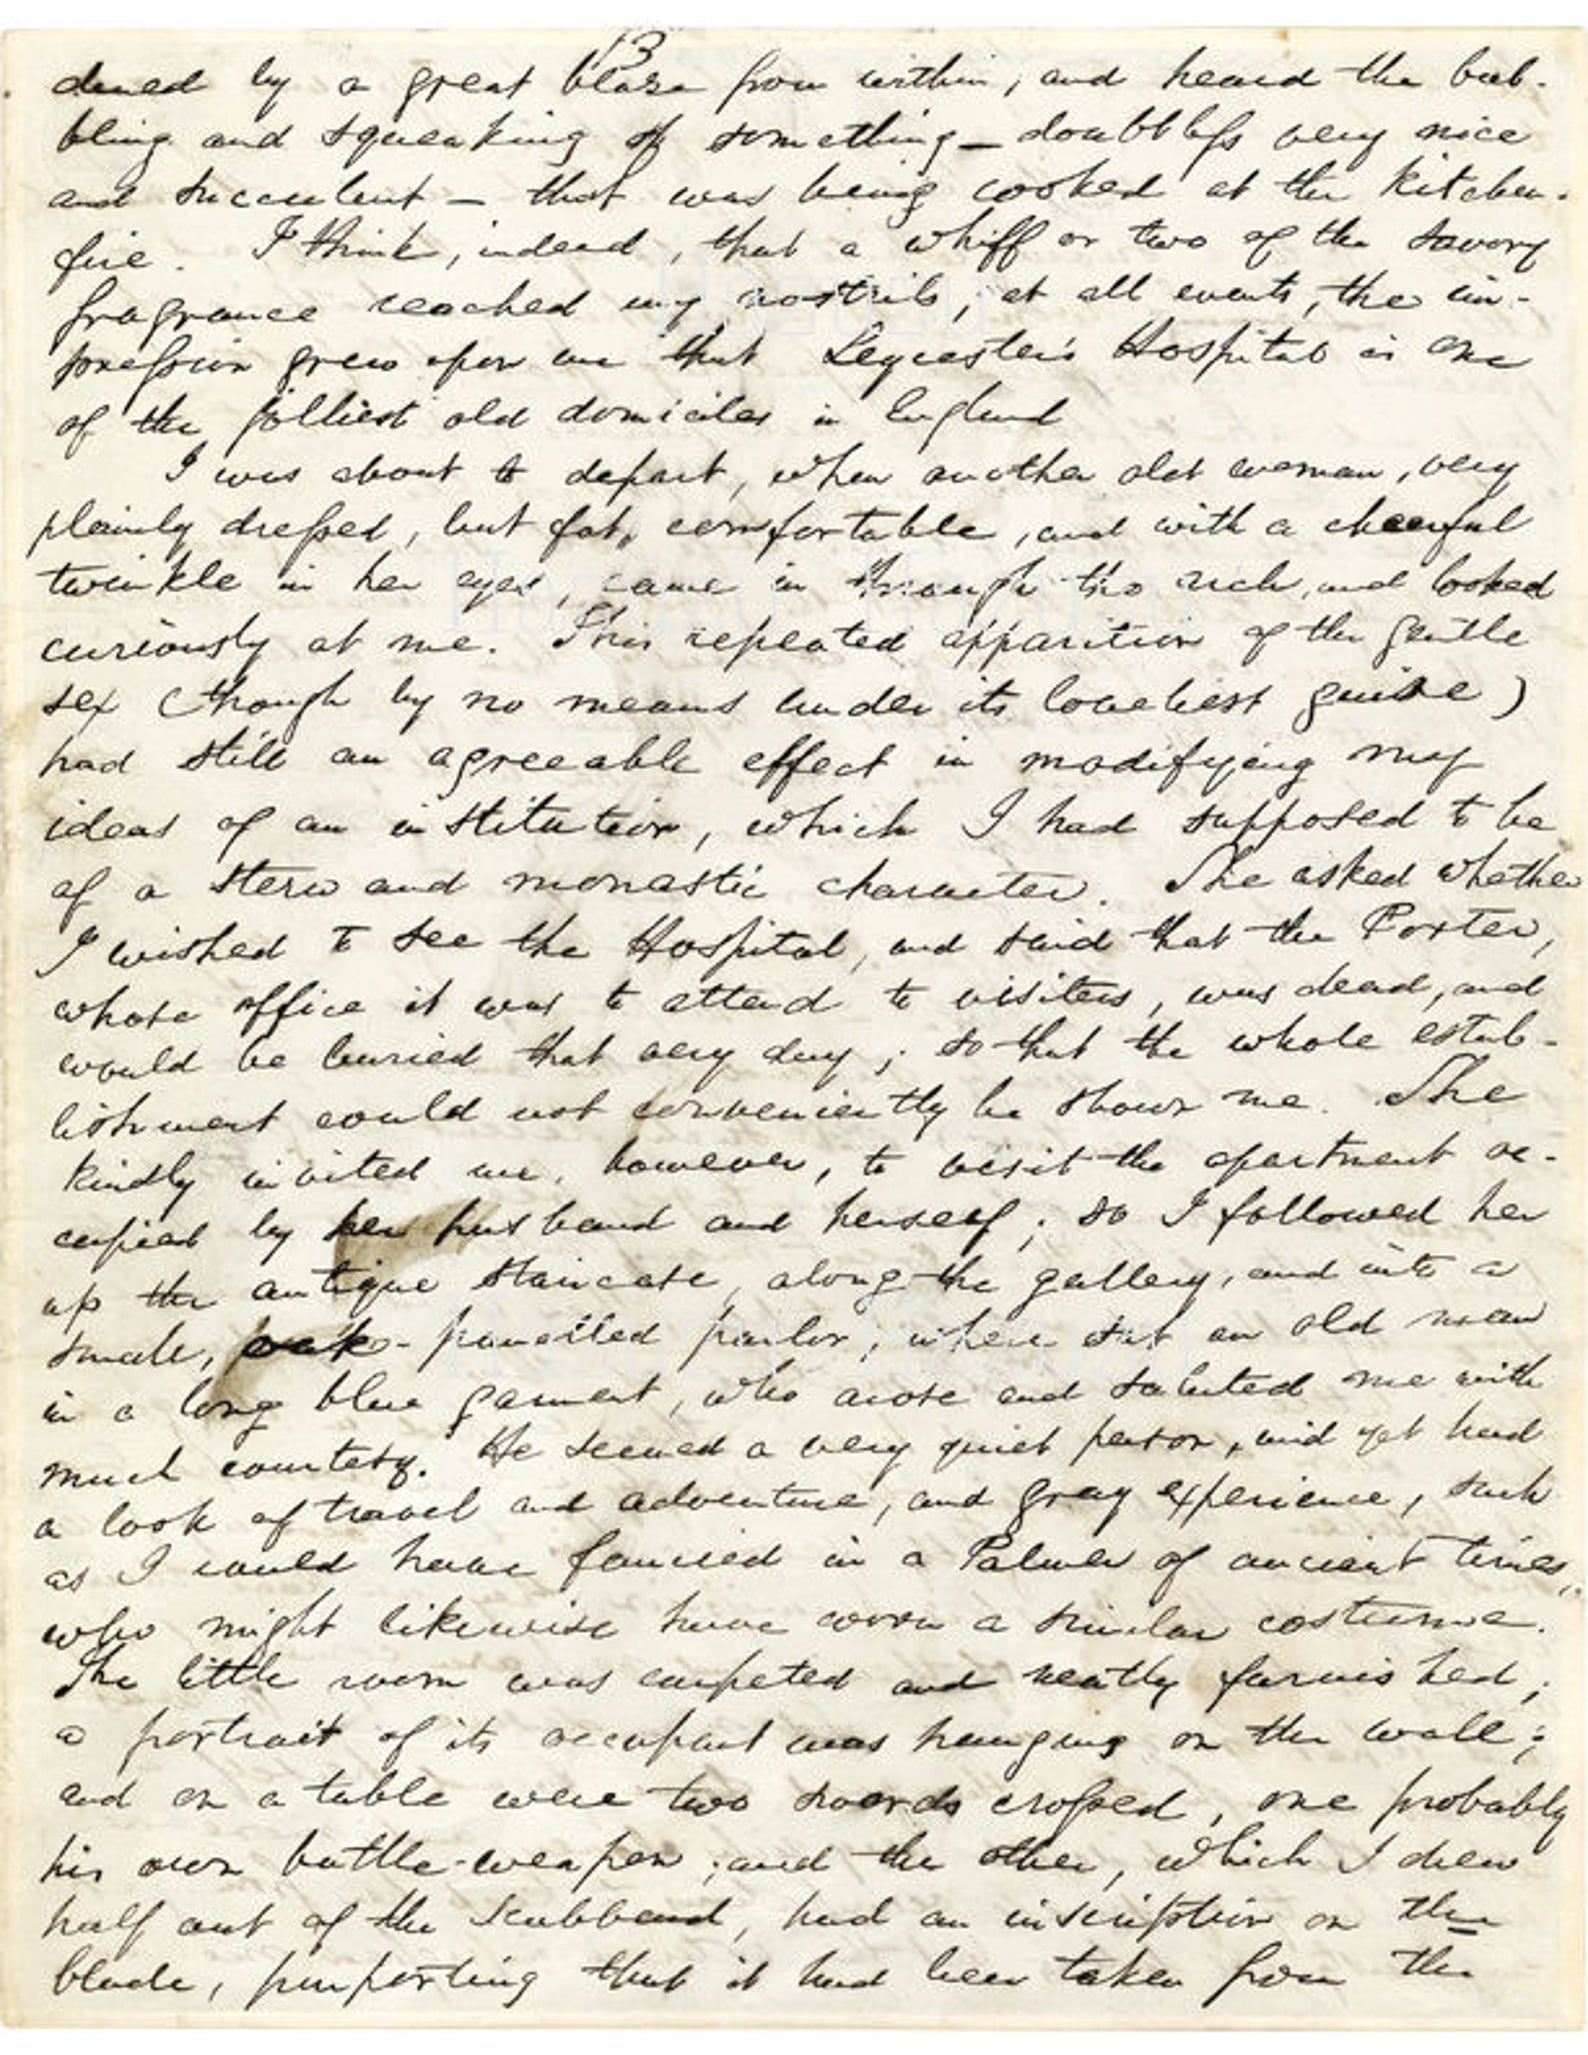 13
dened by a great blaze from within, and heard the bub-
bling and squeaking of something — doubtless very nice
and succulent — that was being cooked at the kitchen-
fire. I think, indeed, that a whiff or two of the savory
fragrance reached my nostrils; at all events, the im-
pression grew upon me that Leycester's Hospital is one
of the jolliest old domiciles in England
I was about to depart, when another old woman, very
plainly dressed, but fat, comfortable, and with a cheerful
twinkle in her eyes, came in through the arch, and looked
curiously at me. This repeated apparition of the gentle
sex (though by no means under its loveliest guise)
had still an agreeable effect in modifying my
ideas of an institution, which I had supposed to be
of a stern and monastic character. She asked whether
I wished to see the Hospital, and said that the Porter,
whose office it was to attend to visiters, was dead, and
would be buried that very day; so that the whole estab-
lishment could not conveniently be shown me. She
kindly invited me, however, to visit the apartment oc-
cupied by her husband and herself; so I followed her
up the antique staircase, along the gallery, and into a
small, oak-panelled parlor, where sat an old man
in a long blue garment, who arose and saluted me with
much courtesy. He seemed a very quiet person, and yet had
a look of travel and adventure, and gray experience, such
as I could have fancied in a Palmer of ancient times,
who might likewise have worn a similar costume.
The little room was carpeted and neatly furnished;
a portrait of its occupant was hanging on the wall;
and on a table were two swords crossed, one probably
his own battle-weapon, and the other, which I drew
half out of the scabbard, had an inscription on the
blade, purporting that it had been taken from the